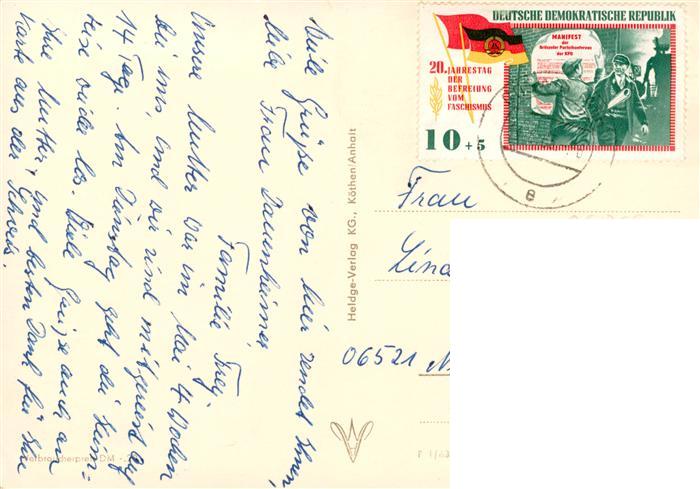 Viele Grüße von hier sendet Ihnen,
liebe Frau Dauenheimer
Familie Frey
Unsere Mutter war im Mai 4 Wochen
bei uns, und wir sind mitgereist auf
14 Tage. Am Dienstag geht die Heim=
reise wieder los. Viele Grüße auch an
Ihre Mutter, und besten Dank für Ihre
Karte aus der Schweiz.
Verbraucherpreis DM
Heldge-Verlag KG., Köthen/Anhalt
DEUTSCHE DEMOKRATISCHE REPUBLIK
20. JAHRESTAG
DER
BEFREIUNG
VOM
FASCHISMUS
MANIFEST
der
Brüsseler Parteikonferenz
der KPD
10+5
e
Frau
Lina
06521